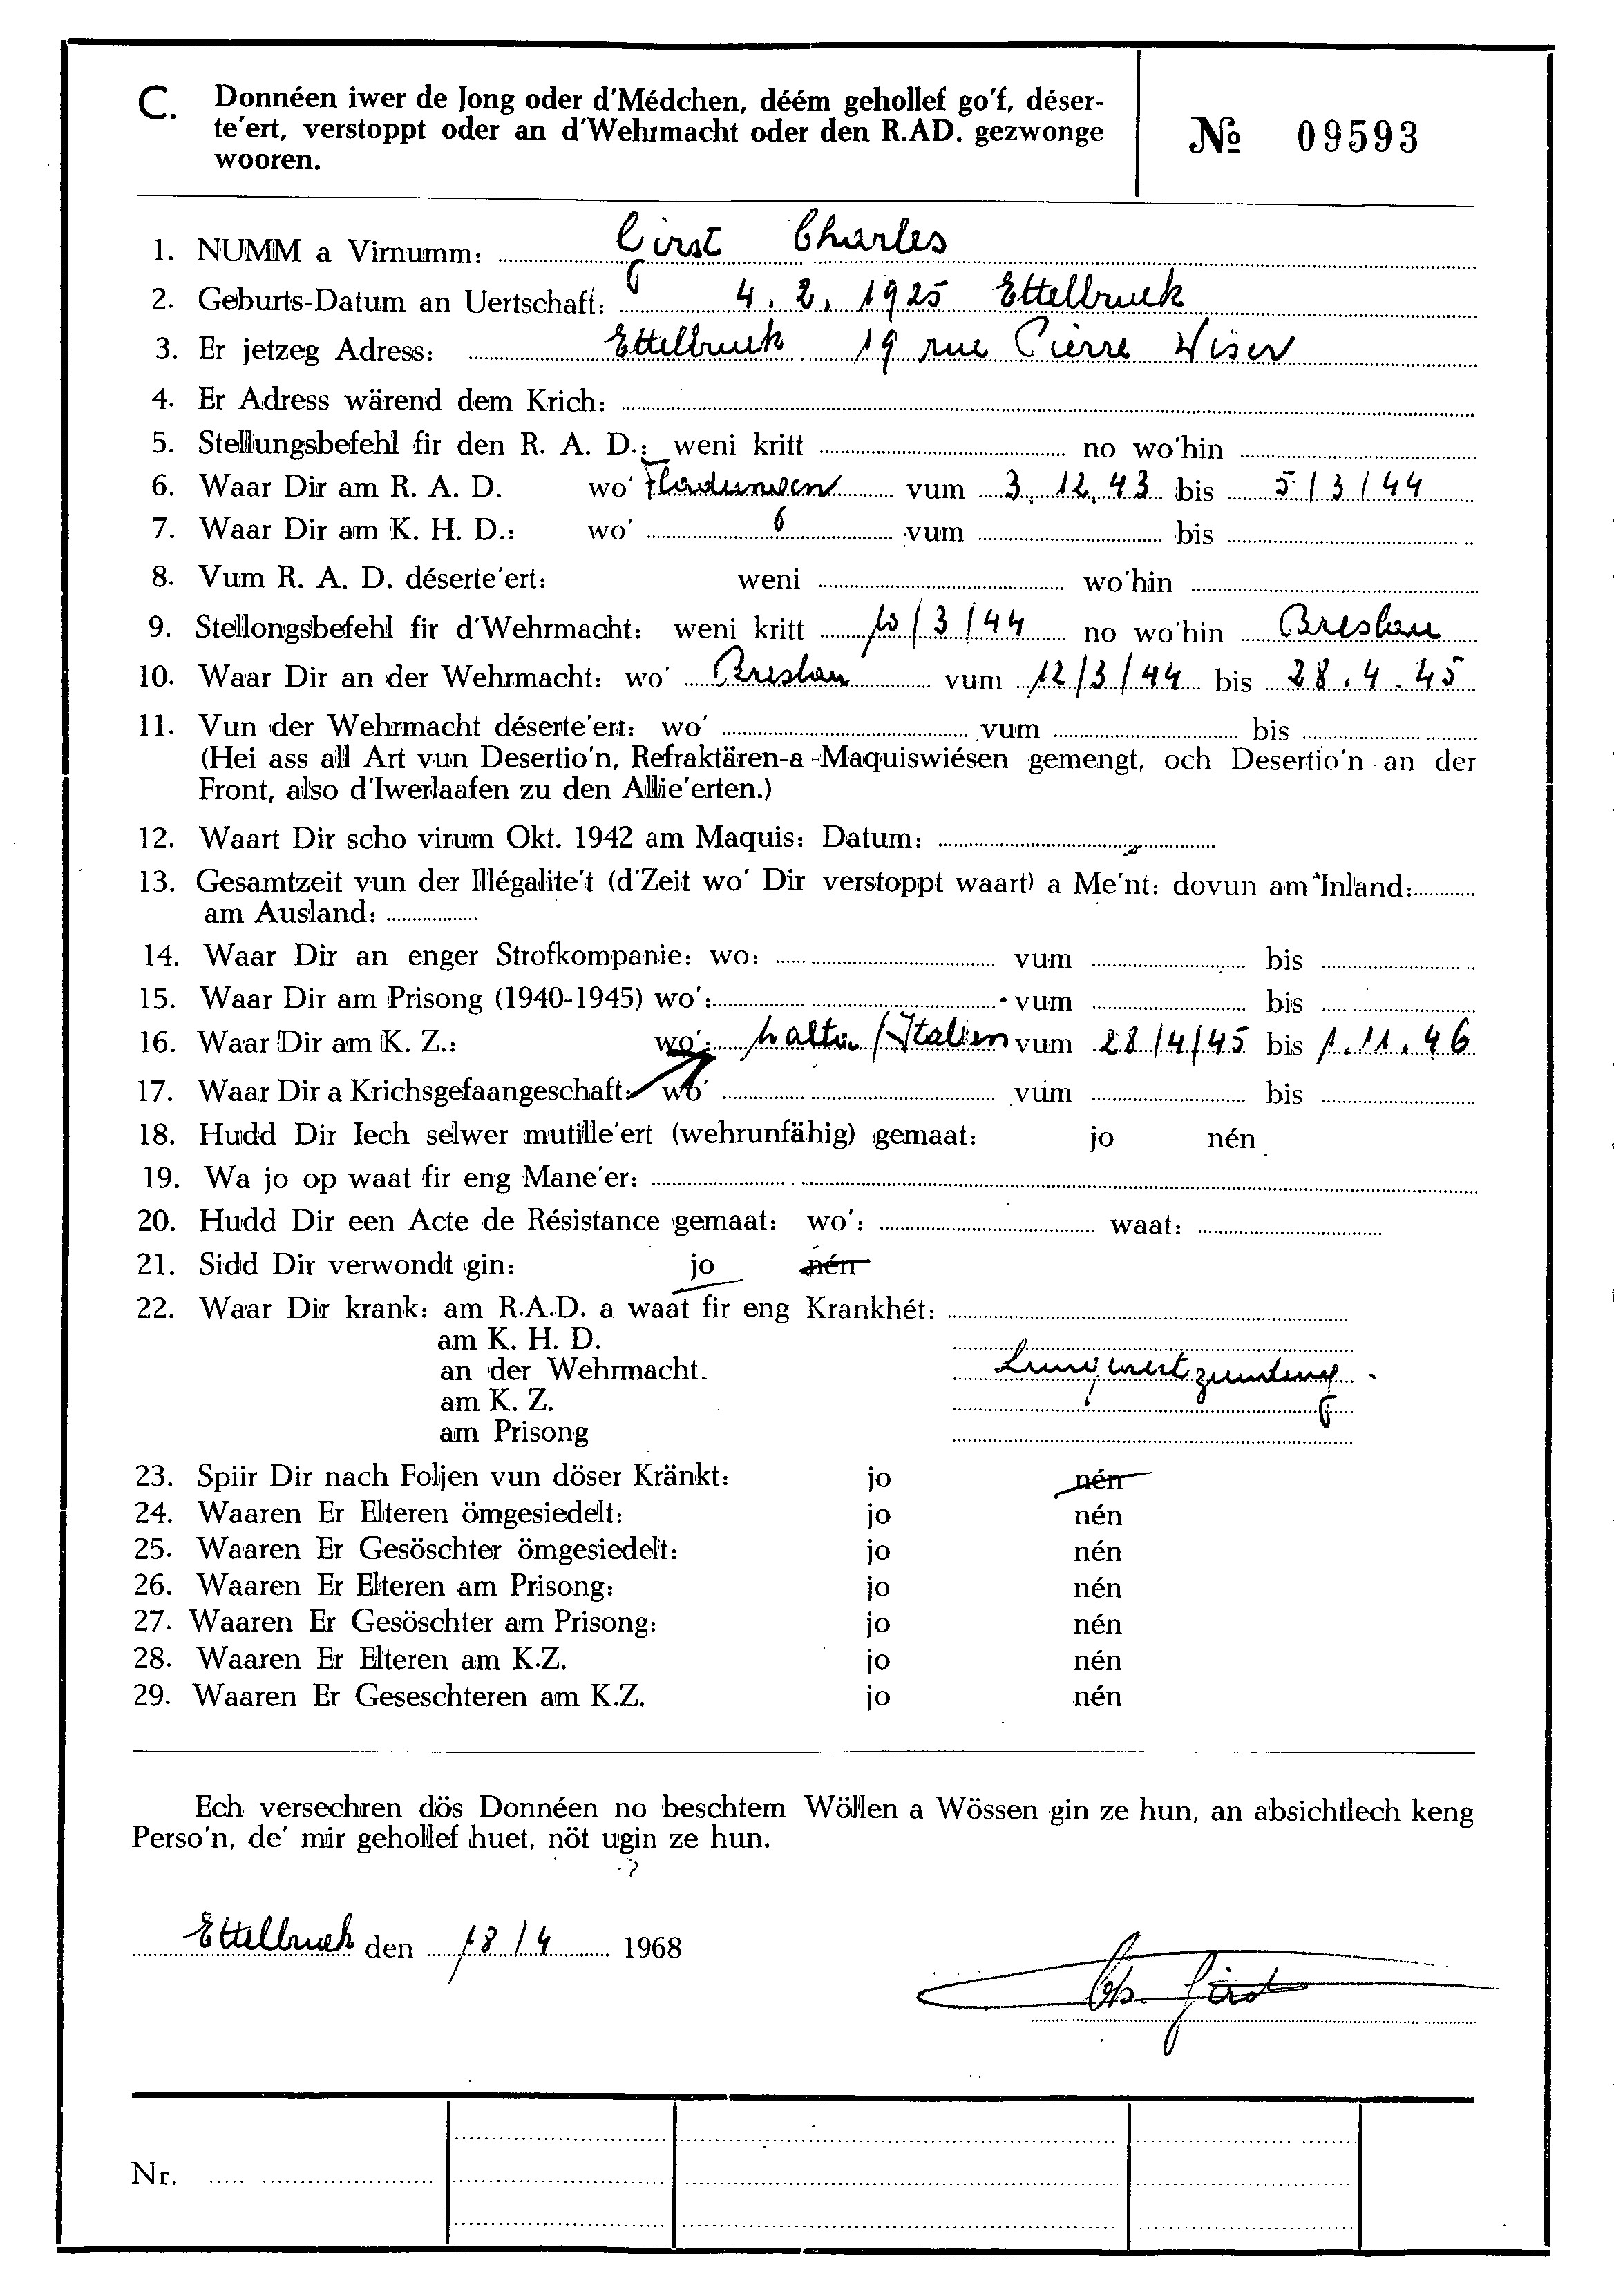 C. Donnéen iwer de Jong oder d'Médchen, déém gehollef go'f, déser-
te'ert, verstoppt oder an d'Wehrmacht oder den R.AD. gezwonge
wooren.
№ 09593
1. NUMM a Virnumm: Girst Charles
2. Geburts-Datum an Uertschaft: 4. 2. 1925 Ettelbruck
3. Er jetzeg Adress: Ettelbruck 19 rue Pierre Wiser
4. Er Adress wärend dem Krich:
5. Stellungsbefehl fir den R. A. D.: weni kritt no wo'hin
6. Waar Dir am R. A. D. wo' vum 3. 12. 43 bis 5/3/44
7. Waar Dir am K. H. D.: wo' vum bis
8. Vum R. A. D. déserte'ert: weni wo'hin
9. Stellongsbefehl fir d'Wehrmacht: weni kritt 10/3/44 no wo'hin Breslau
10. Waar Dir an der Wehrmacht: wo' Breslau vum 12/3/44 bis 28.4.45
11. Vun der Wehrmacht déserte'ert: wo' vum bis
(Hei ass all Art vun Desertio'n, Refraktären-a-Maquiswiésen gemengt, och Desertio'n an der
Front, also d'Iwerlaafen zu den Allie'erten.)
12. Waart Dir scho virum Okt. 1942 am Maquis: Datum:
13. Gesamtzeit vun der Illégalite't (d'Zeit wo' Dir verstoppt waart) a Me'nt: dovun am Inland:
am Ausland:
14. Waar Dir an enger Strofkompanie: wo: vum bis
15. Waar Dir am Prisong (1940-1945) wo': vum bis
16. Waar Dir am K. Z.: wo': /Italien vum 28/4/45 bis 1.11.46
17. Waar Dir a Krichsgefaangeschaft: wo' vum bis
18. Hudd Dir Iech selwer mutille'ert (wehrunfähig) gemaat: jo nén
19. Wa jo op waat fir eng Mane'er:
20. Hudd Dir een Acte de Résistance gemaat: wo': waat:
21. Sidd Dir verwondt gin: jo nén
22. Waar Dir krank: am R.A.D. a waat fir eng Krankhét:
am K. H. D.
an der Wehrmacht. Lungenentzündung
am K. Z.
am Prisong
23. Spiir Dir nach Foljen vun döser Kränkt: jo nén
24. Waaren Er Elteren ömgesiedelt: jo nén
25. Waaren Er Gesöschter ömgesiedelt: jo nén
26. Waaren Er Elteren am Prisong: jo nén
27. Waaren Er Gesöschter am Prisong: jo nén
28. Waaren Er Elteren am K.Z. jo nén
29. Waaren Er Geseschteren am K.Z. jo nén
Ech versechren dös Donnéen no beschtem Wöllen a Wössen gin ze hun, an absichtlech keng
Perso'n, de' mir gehollef huet, nöt ugin ze hun.
Ettelbruck den 18/4 1968
Ch. Girst
Nr.